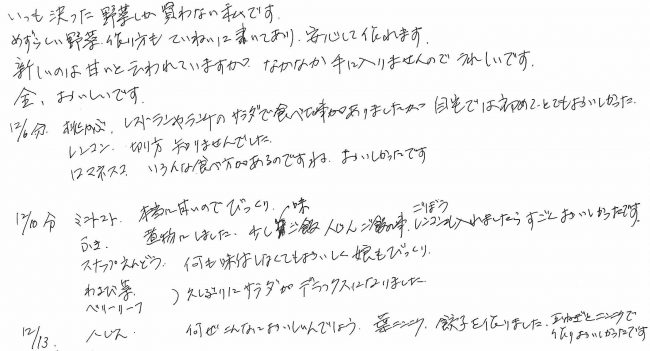 いつも決った野菜しか買わない私です。
めずらしい野菜、作り方もていねいに書いてあり、安心して作れます。
新しいのは甘いと云われていますが、なかなか手に入りませんのでうれしいです。
全、おいしいです。
12/6分 レストランやランチのサラダで食べた事がありましたが、自宅では初めてとてもおいしかった。
レンコン 切り方 知りませんでした。
ロマネスコ いろんな食べ方があるのですね。おいしかったです
12/10分 ミニトマト 本当に甘いのでびっくり、味
ふき 煮物にしました。少しご飯 ごぼう レンコン入れましたらすごくおいしかったです。
スナップえんどう 何も味はしなくてもおいしく娘もびっくり。
わさび菜
ベリーリーフ ）久しぶりにサラダがデラックスになりました
12/13. 何ぜこんなにおいしいんでしょう。葉ニンニク、餃子を作りました。玉ねぎとニンニクで
作りおいしかったです